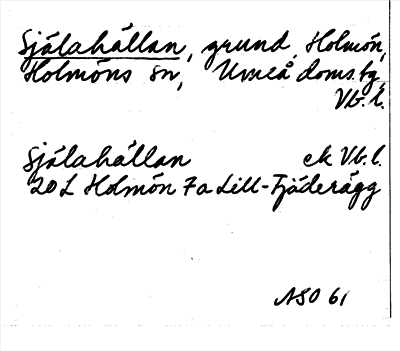 Själahällan, grund, Holmön,
Holmöns sn, Umeå doms.hg,
Vb. l.
Själahällan ek Vb. l.
20 L Holmön 7a Lill-Fjäderägg
ASO 61